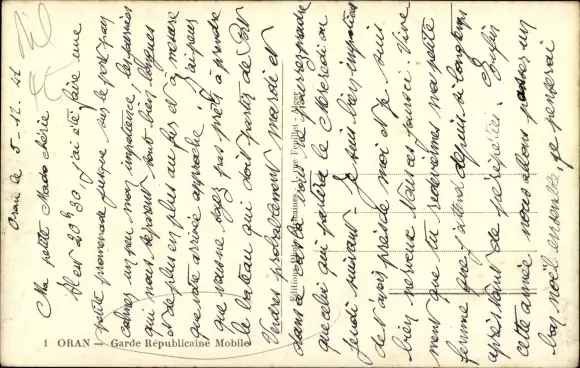 Oran le 5-12-44
Ma petite Mado chérie
Il est 20h30 j'ai été faire une
petite promenade jusque sur le port pour
calmer un peu mon impatience, les journées
qui nous séparent sont bien longues
et de plus en plus au fur et à mesure
que votre arrivée approche, j'ai peur
que vous ne soyez pas prêts à prendre
le bateau qui doit partir de Port
Vendres probablement mardi et
dans ce cas là vous ne pourrez prendre
que celui qui partira le Mercredi ou
Jeudi suivant - Je suis bien impatient
de t'avoir près de moi et je suis
bien nerveux tous ces jours ci Vive
ment que tu redeviennes ma petite
femme que j'attend depuis si longtemps
après tant de péripéties Enfin
cette année nous allons passer un
bon noël ensemble, je penserai
1 ORAN - Garde Républicaine Mobile
Editions Photo